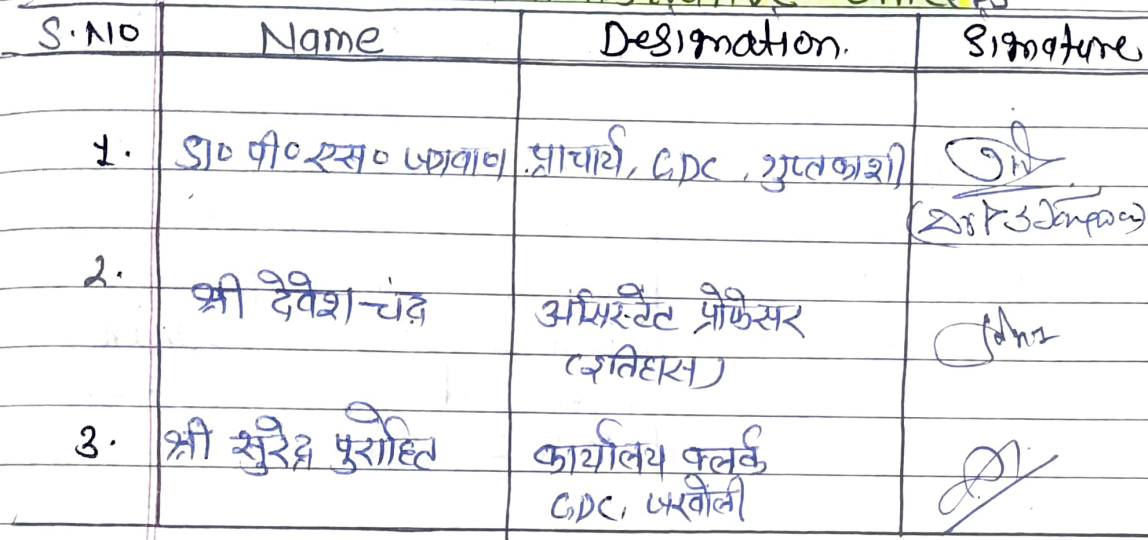 S.NO Name Designation. Signature
1. डा० पी०एस० जगवाण प्राचार्य, GDC, गुप्तकाशी
2. श्री देवेश चंद्र असिस्टेंट प्रोफेसर
(इतिहास)
3. श्री सुरेन्द्र पुरोहित कार्यालय क्लर्क
GDC, जखोली